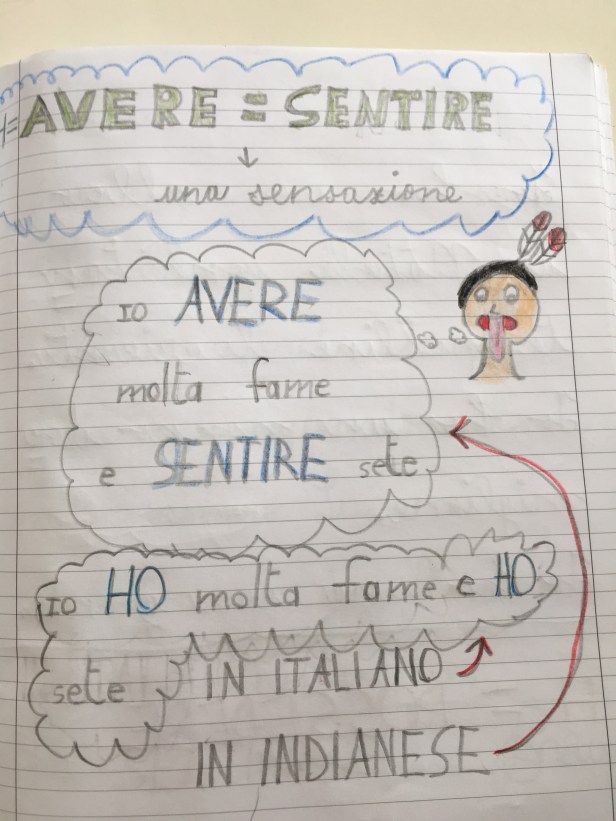 H=AVERE = SENTIRE
↓
una sensazione
IO AVERE
molta fame
e SENTIRE sete
IO HO molta fame e HO
sete
IN ITALIANO
IN INDIANESE